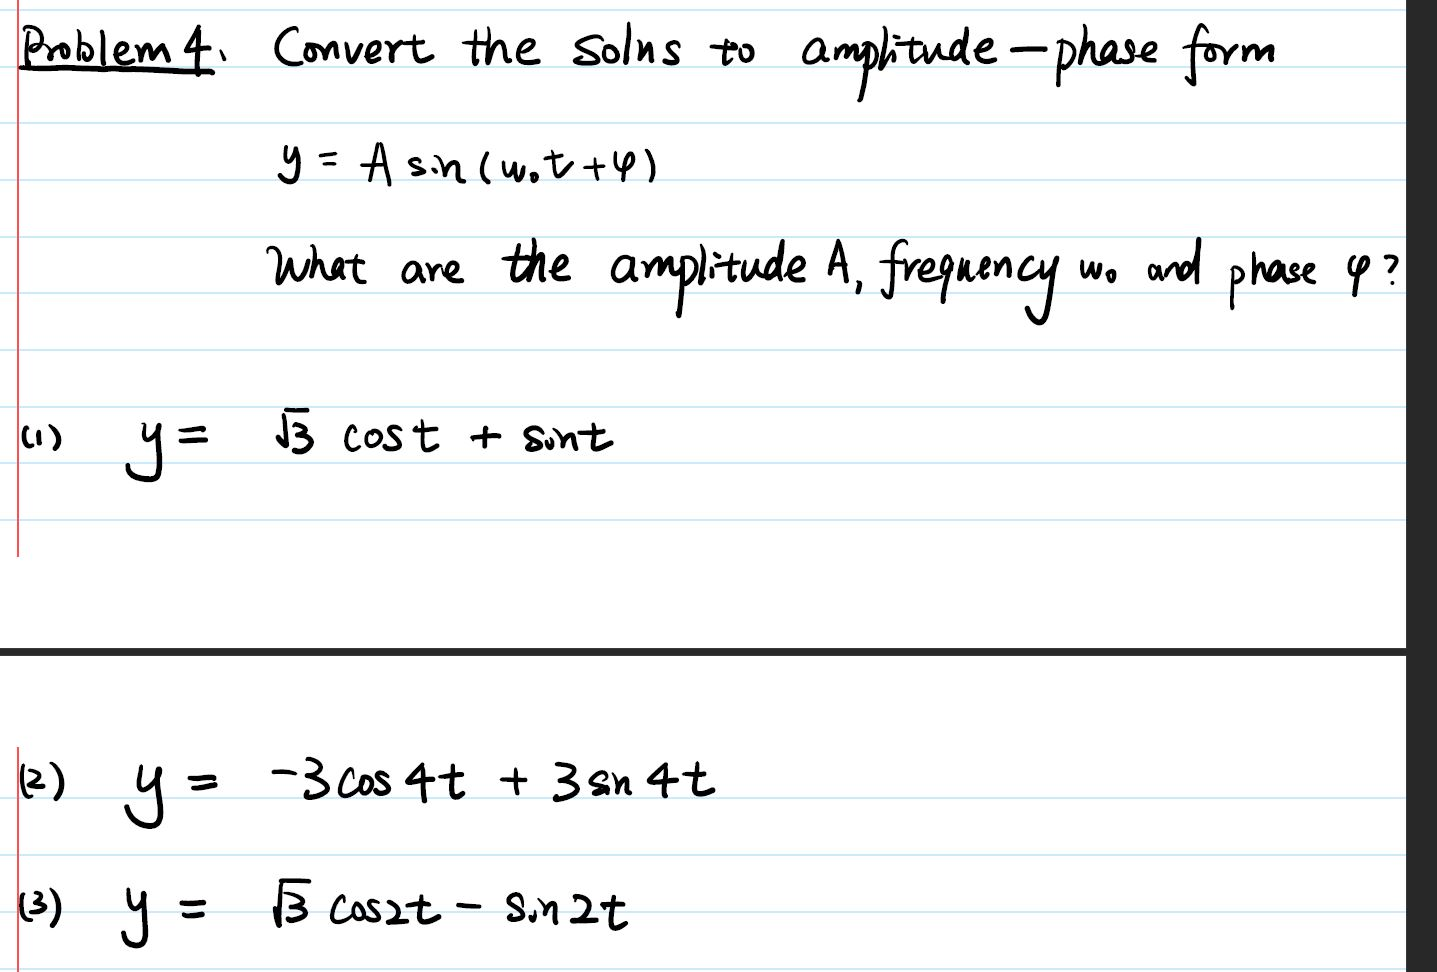 Problem 4. Convert the solns to amplitude-phase form
y = A sin(ω₀t + φ)
What are the amplitude A, frequency ω₀ and phase φ?
(1) y = √3 cos t + sin t
(2) y = -3 cos 4t + 3 sin 4t
(3) y = √3 cos 2t - sin 2t